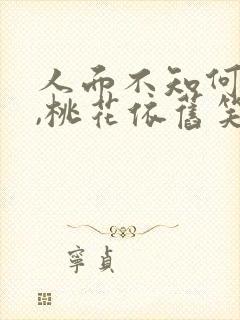 人而不知何
,桃花依舊笑
寧貞